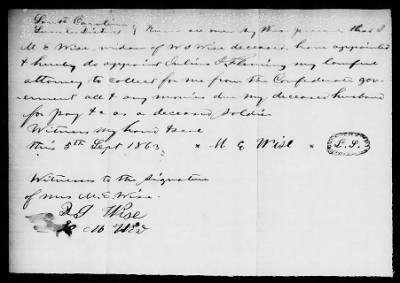 South Carolina
Sumter District } Know all men by these presents that I
M E Wise, widow of W J Wise deceased, have appointed
& thereby do appoint Julius J Fleming my lawful
attorney to collect for me from the Confederate gov-
ernment all & any monies due my deceased husband
for pay &c as a deceased soldier
Witness my hand & seal
this 5th Sept 1863 x M E Wise x L.S.
Witness to the Signature
of Mrs M. E. Wise.
Wise